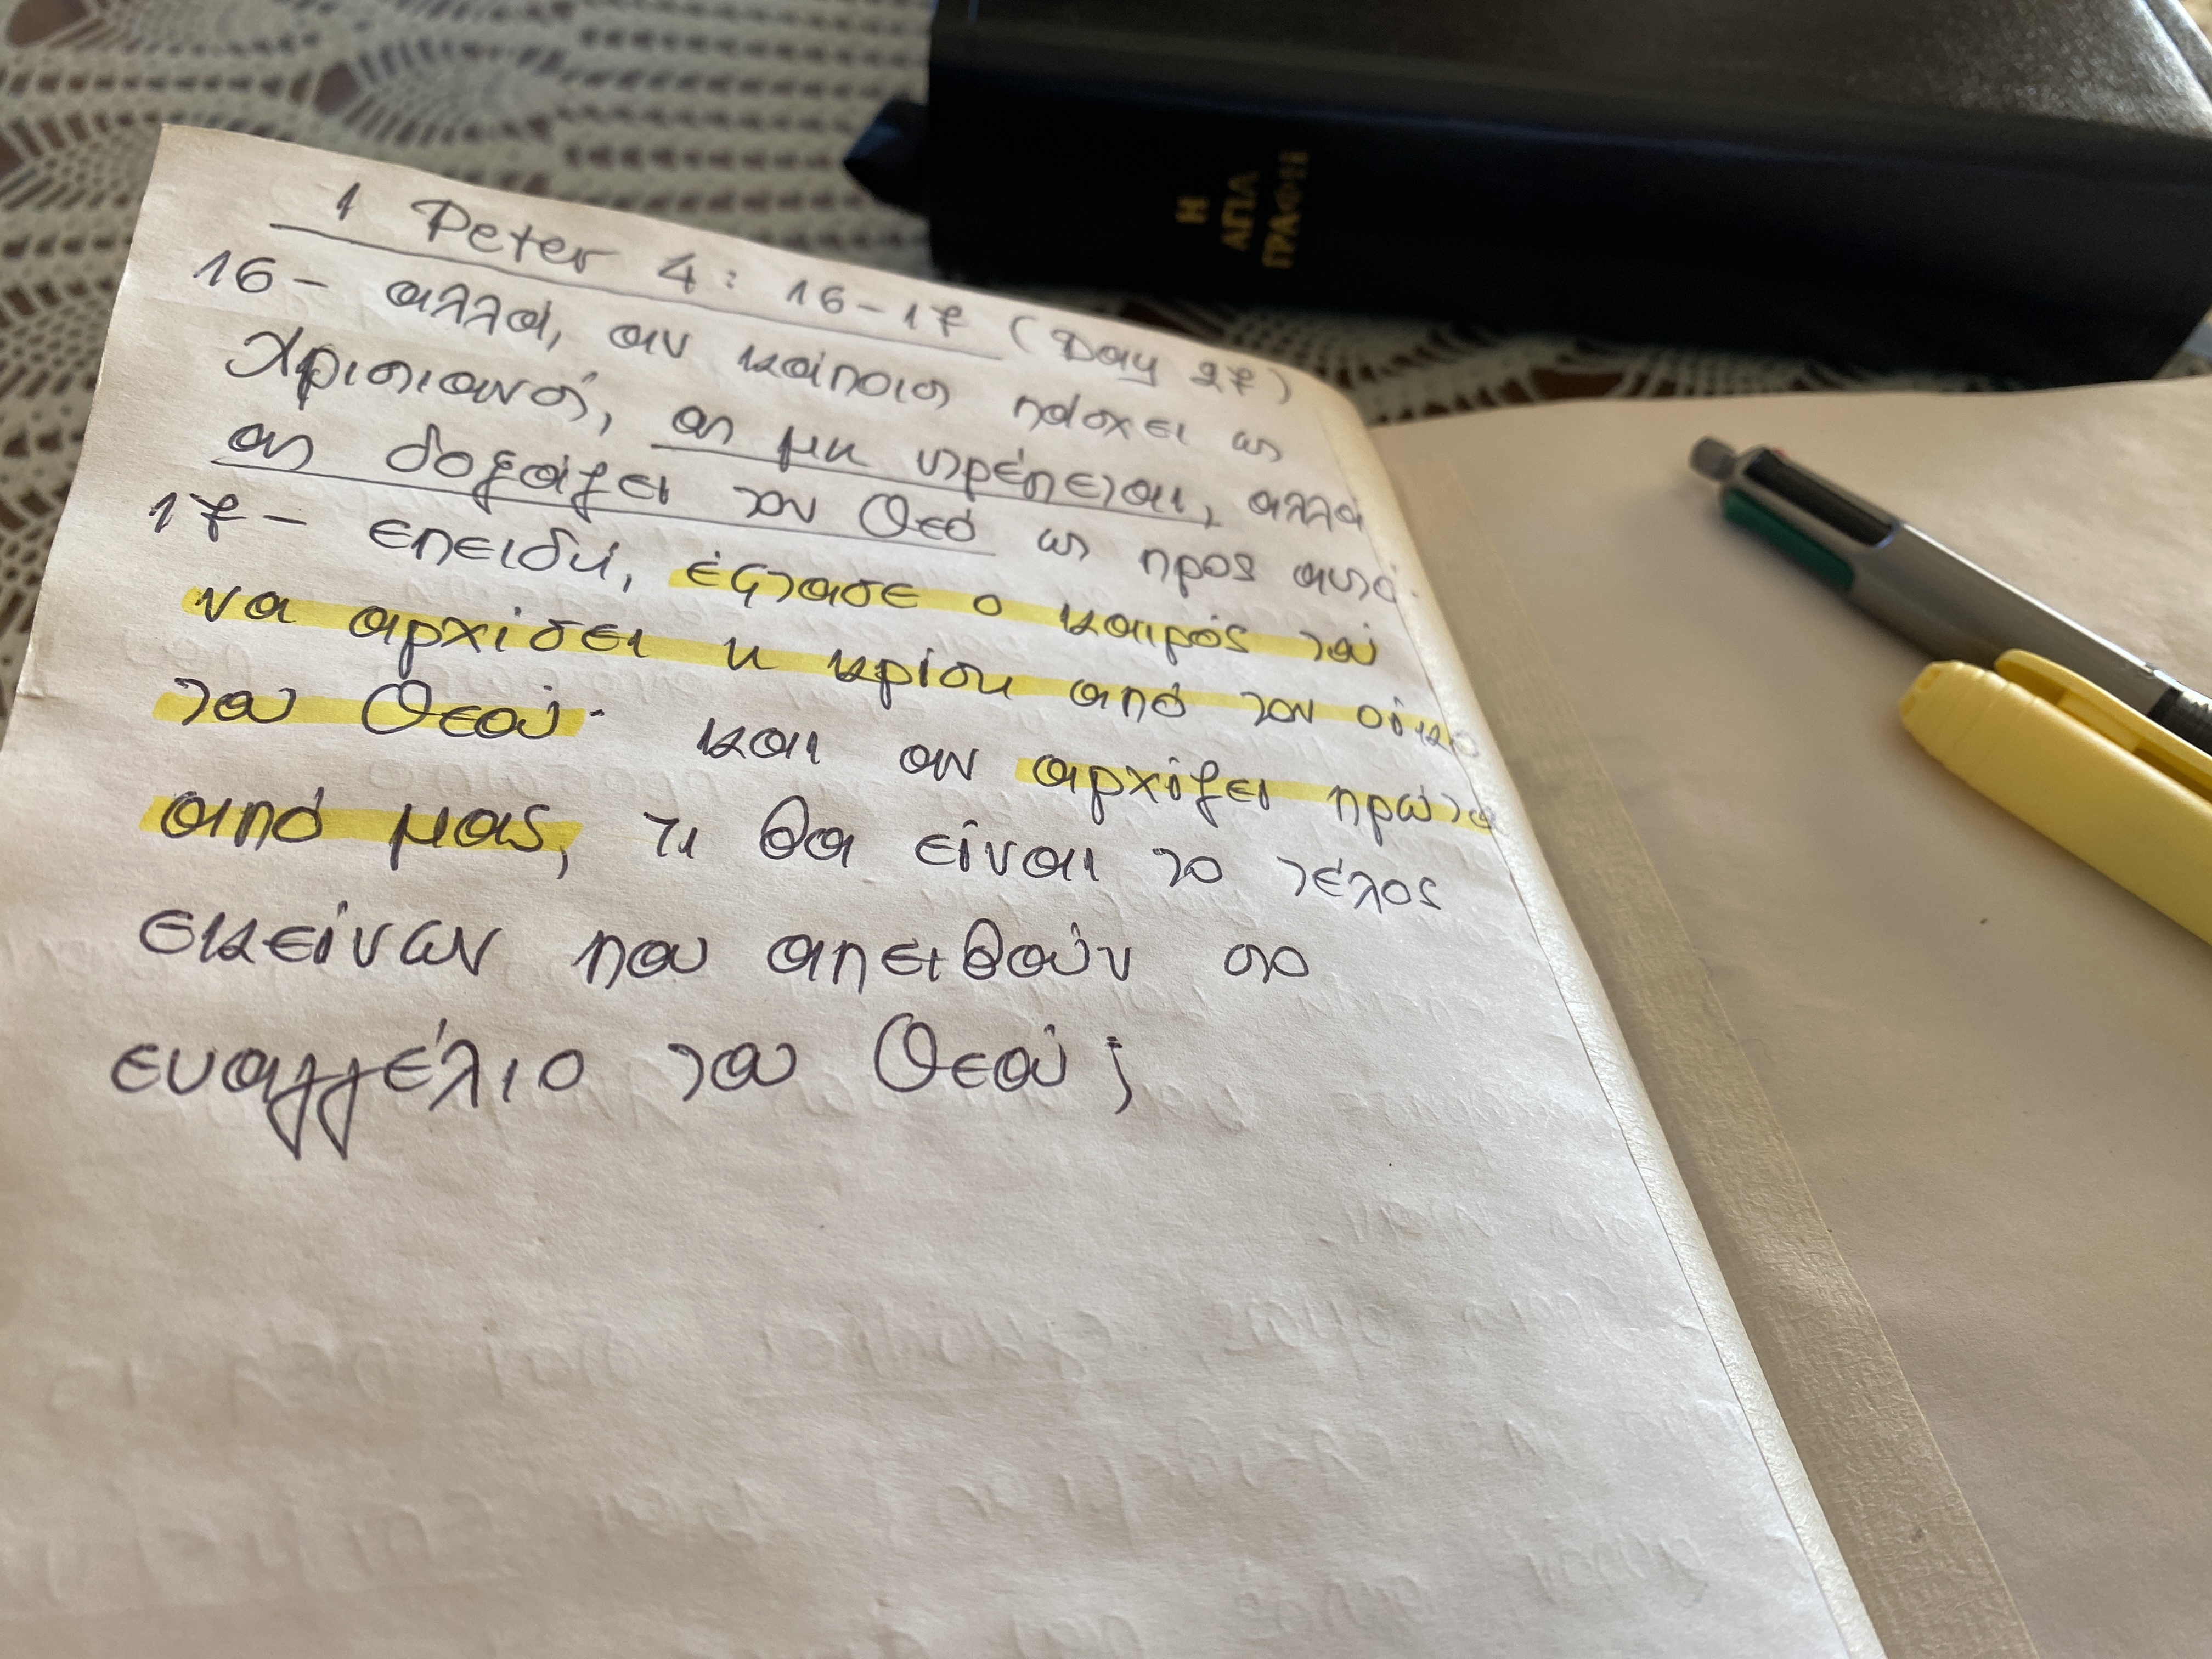 1 Peter 4: 16-17 (Day 27)
16- αλλά, αν κάποιος πάσχει ως
Χριστιανός, ας μη ντρέπεται, αλλά
ας δοξάζει τον Θεό ως προς αυτό.
17- επειδή, έφτασε ο καιρός τού
να αρχίσει η κρίση από τον οίκο
του Θεού· και αν αρχίζει πρώτα
από μας, τι θα είναι το τέλος
εκείνων που απειθούν στο
ευαγγέλιο του Θεού;
Η
ΑΓΙΑ
ΓΡΑΦΗ